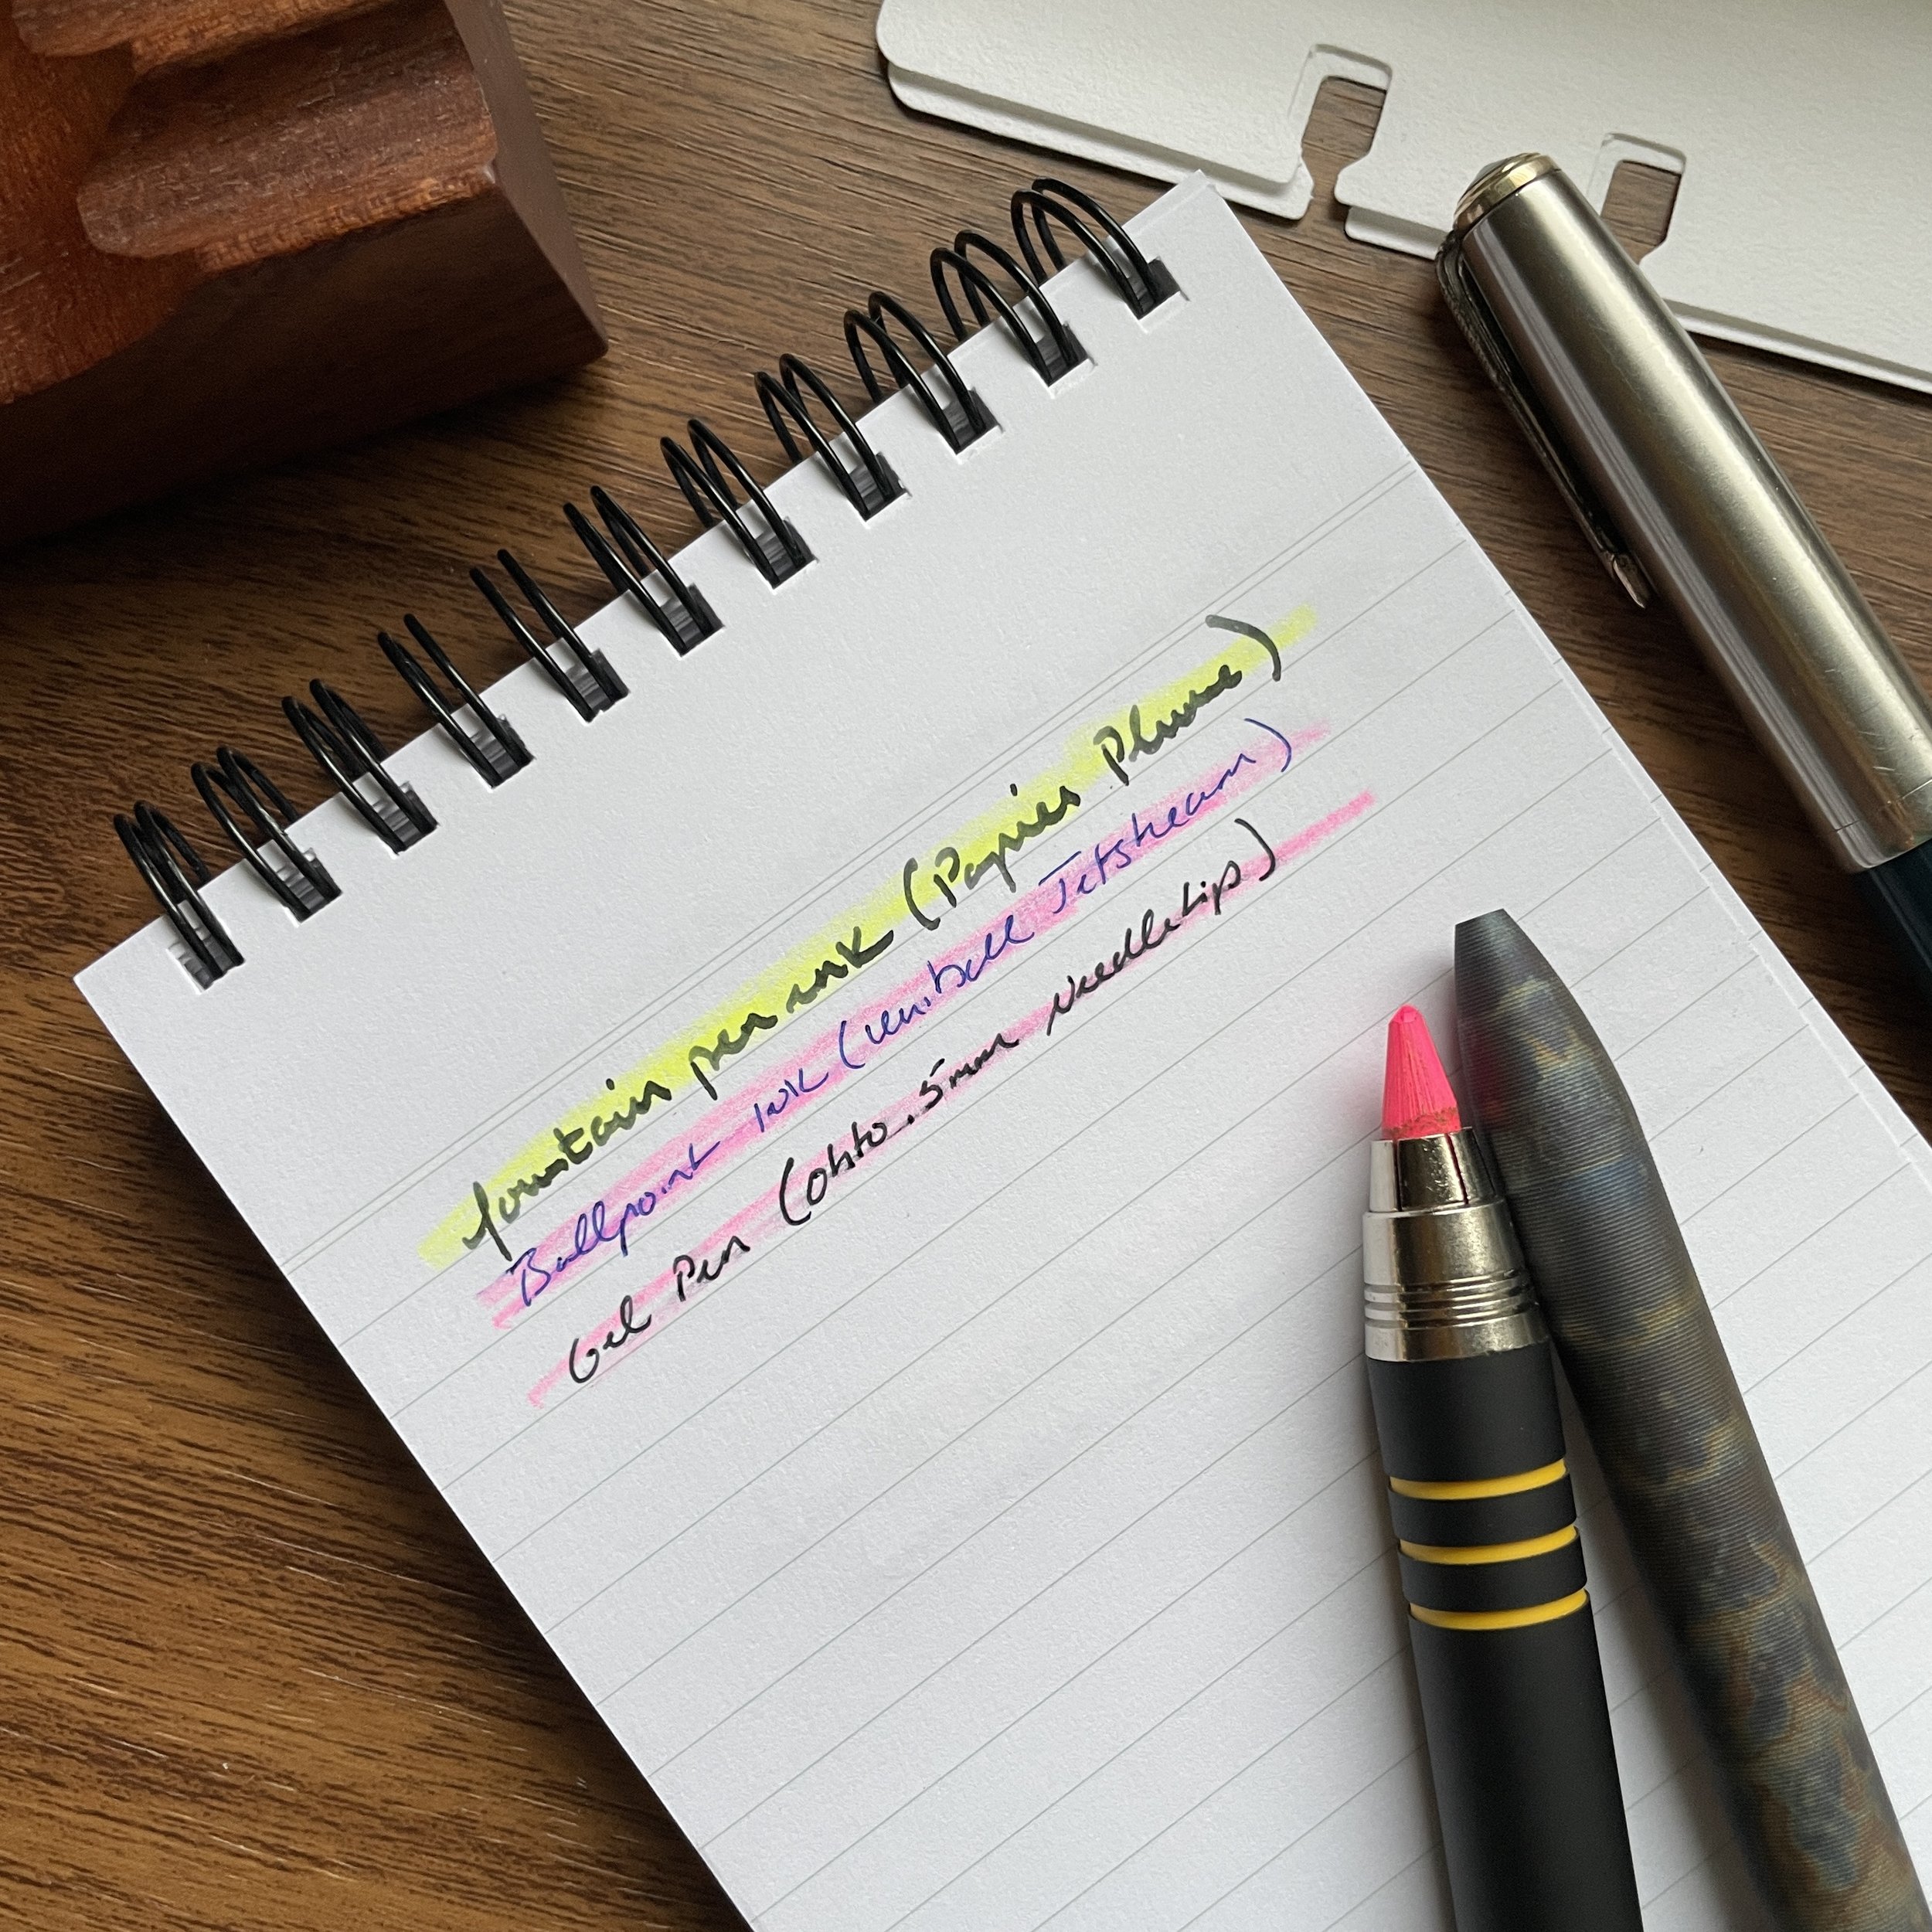 fountain pen ink (Papier Plume)
Ballpoint ink (uniball Jetstream)
Gel Pen (Ohto .5mm Needletip)